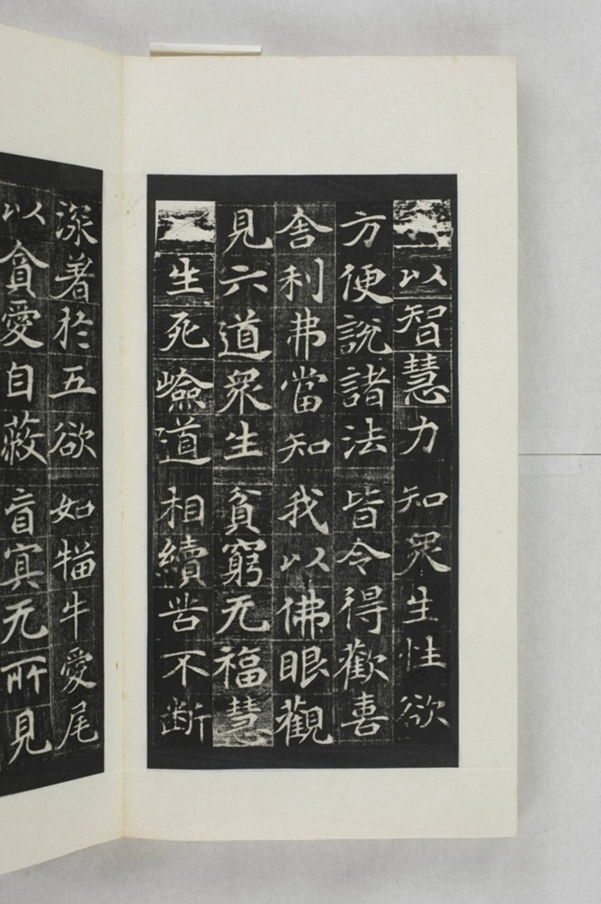 以智慧力知衆生性欲
方便說諸法皆令得歡喜
舍利弗當知我以佛眼觀
見六道衆生貧窮无福慧
生死嶮道相續苦不断
深著於五欲如猫牛愛尾
以貪愛自蔽盲冥无所見